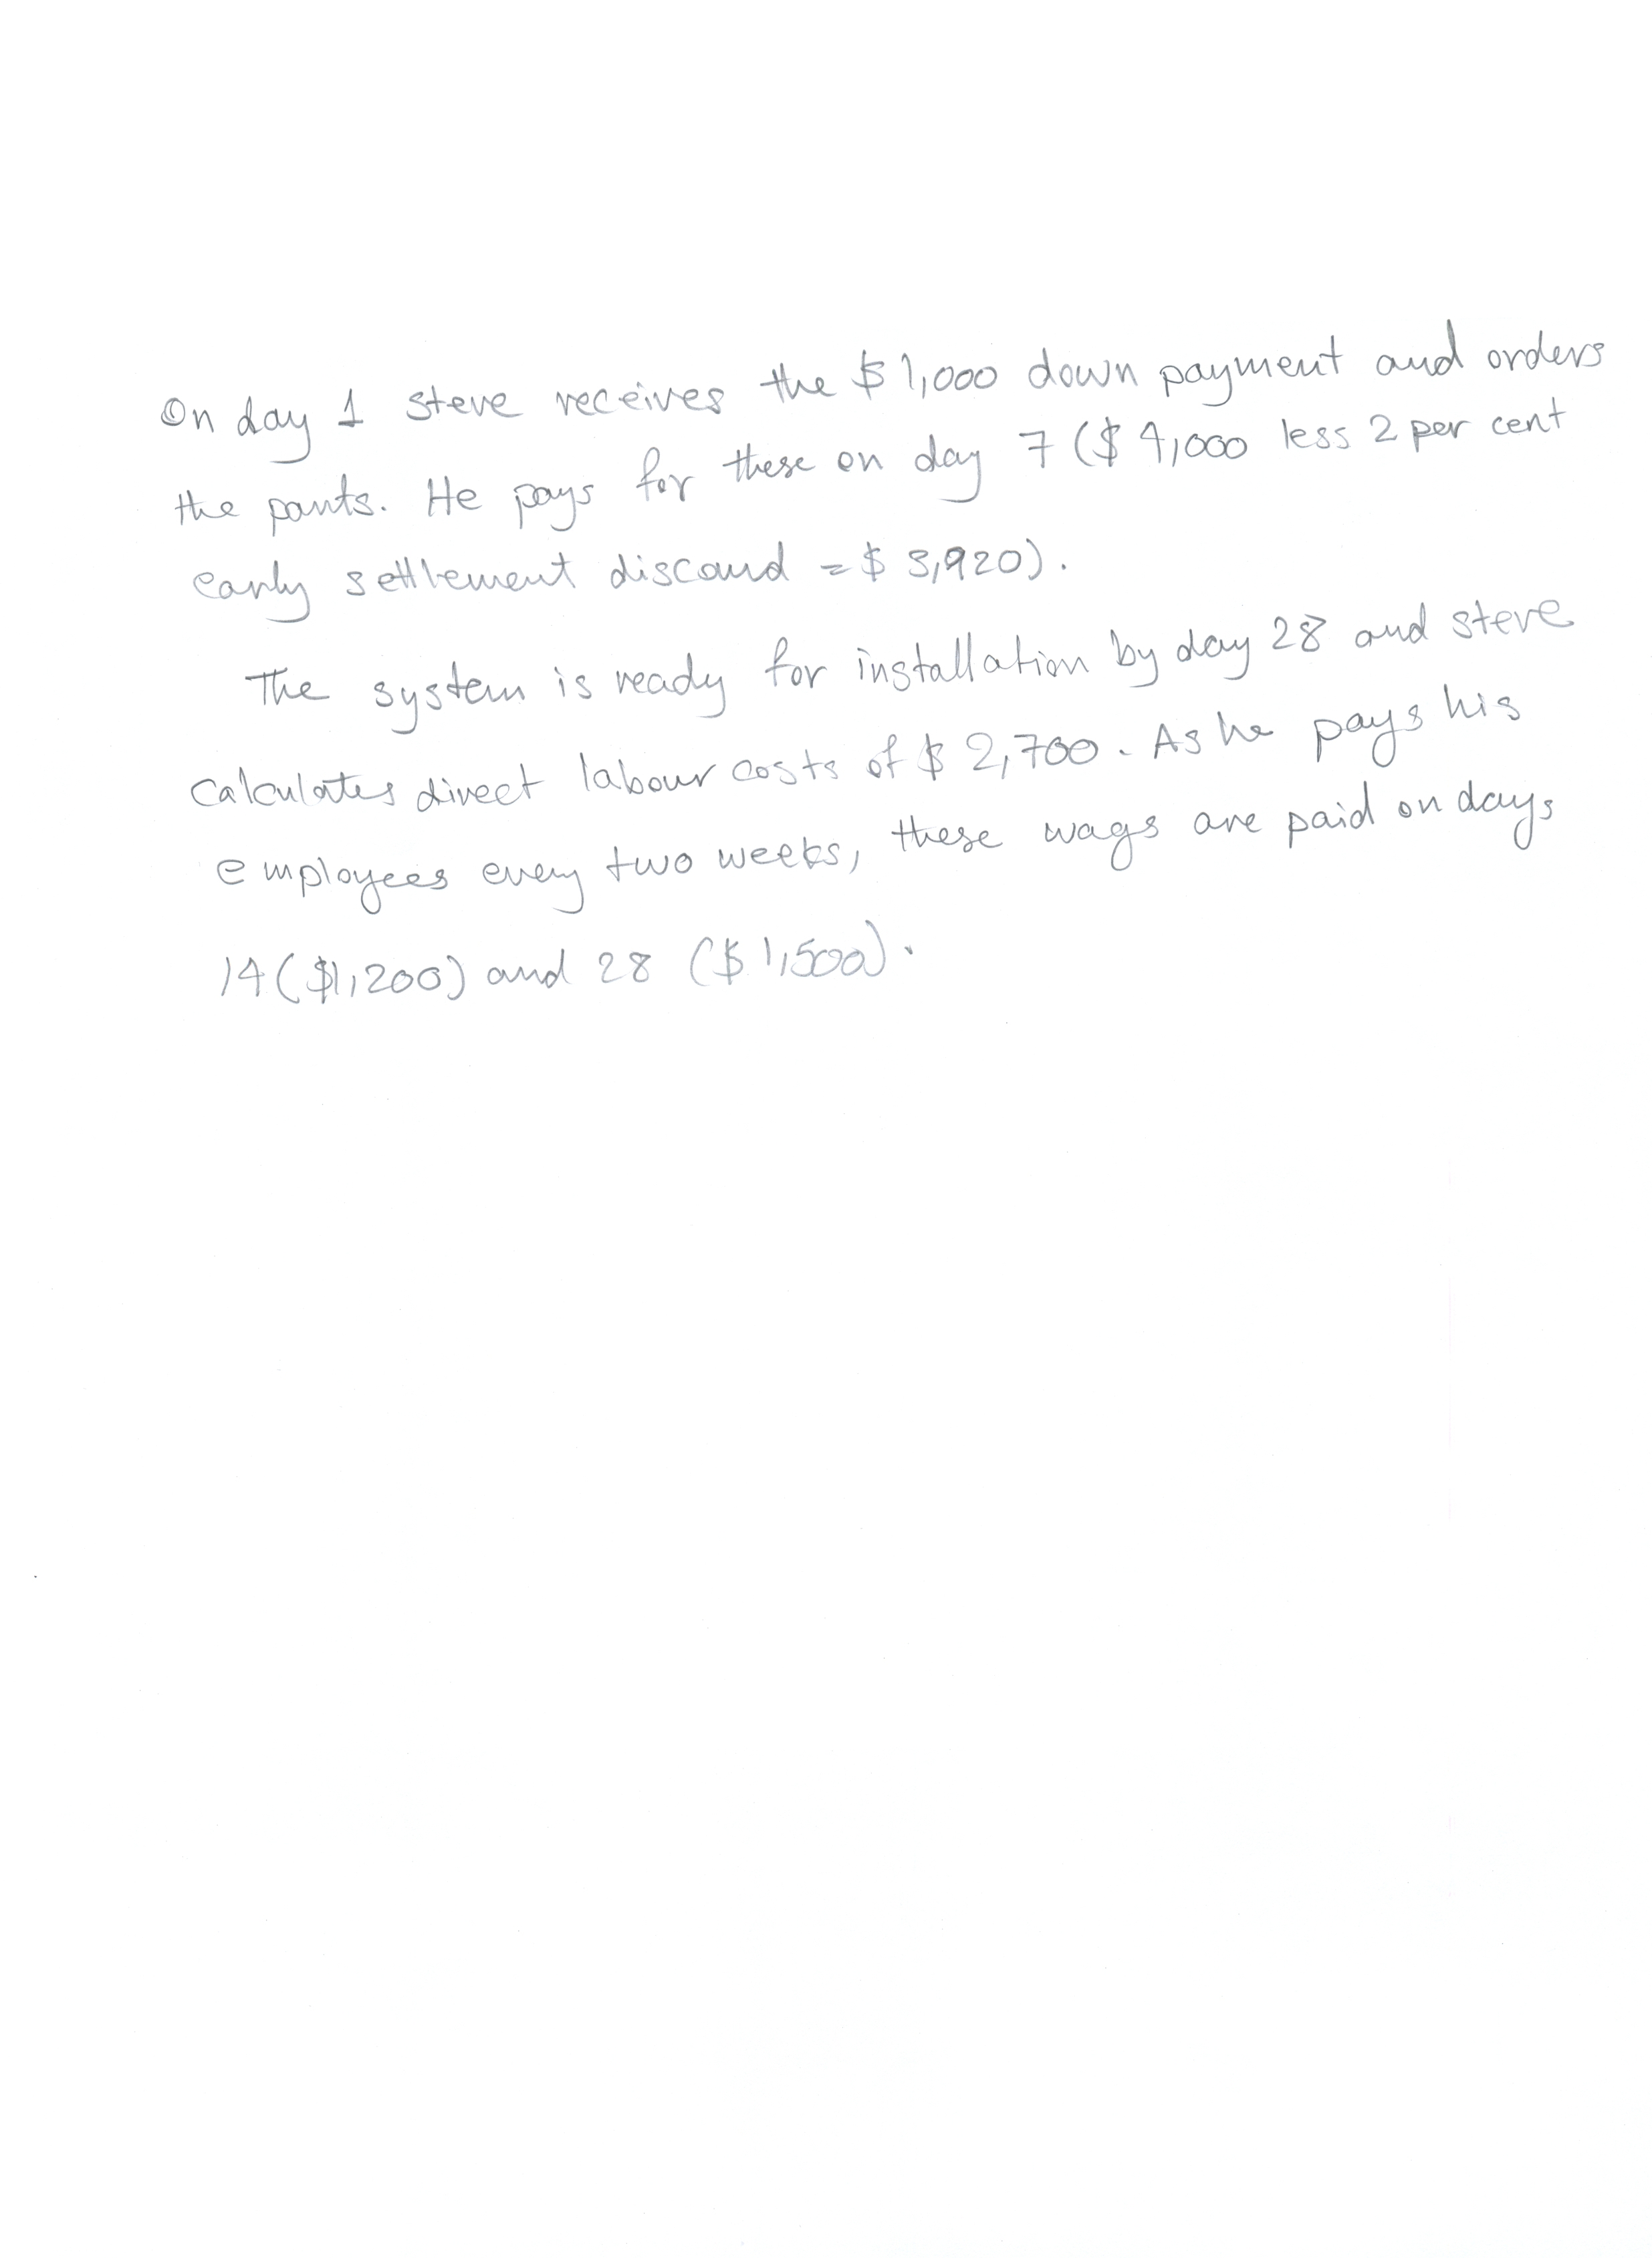 On day 1 steve receives the $ 1,000 down payment and orders
the pants. He pays for these on day 7 ($ 4,000 less 2 per cent
early settlement discound = $ 3,920).
The system is ready for installation by day 28 and steve
calculates direct labour costs of $ 2,700. As he pays his
employees every two weeks, these wags are paid on days
14 ($1,200) and 28 ($ 1,500).